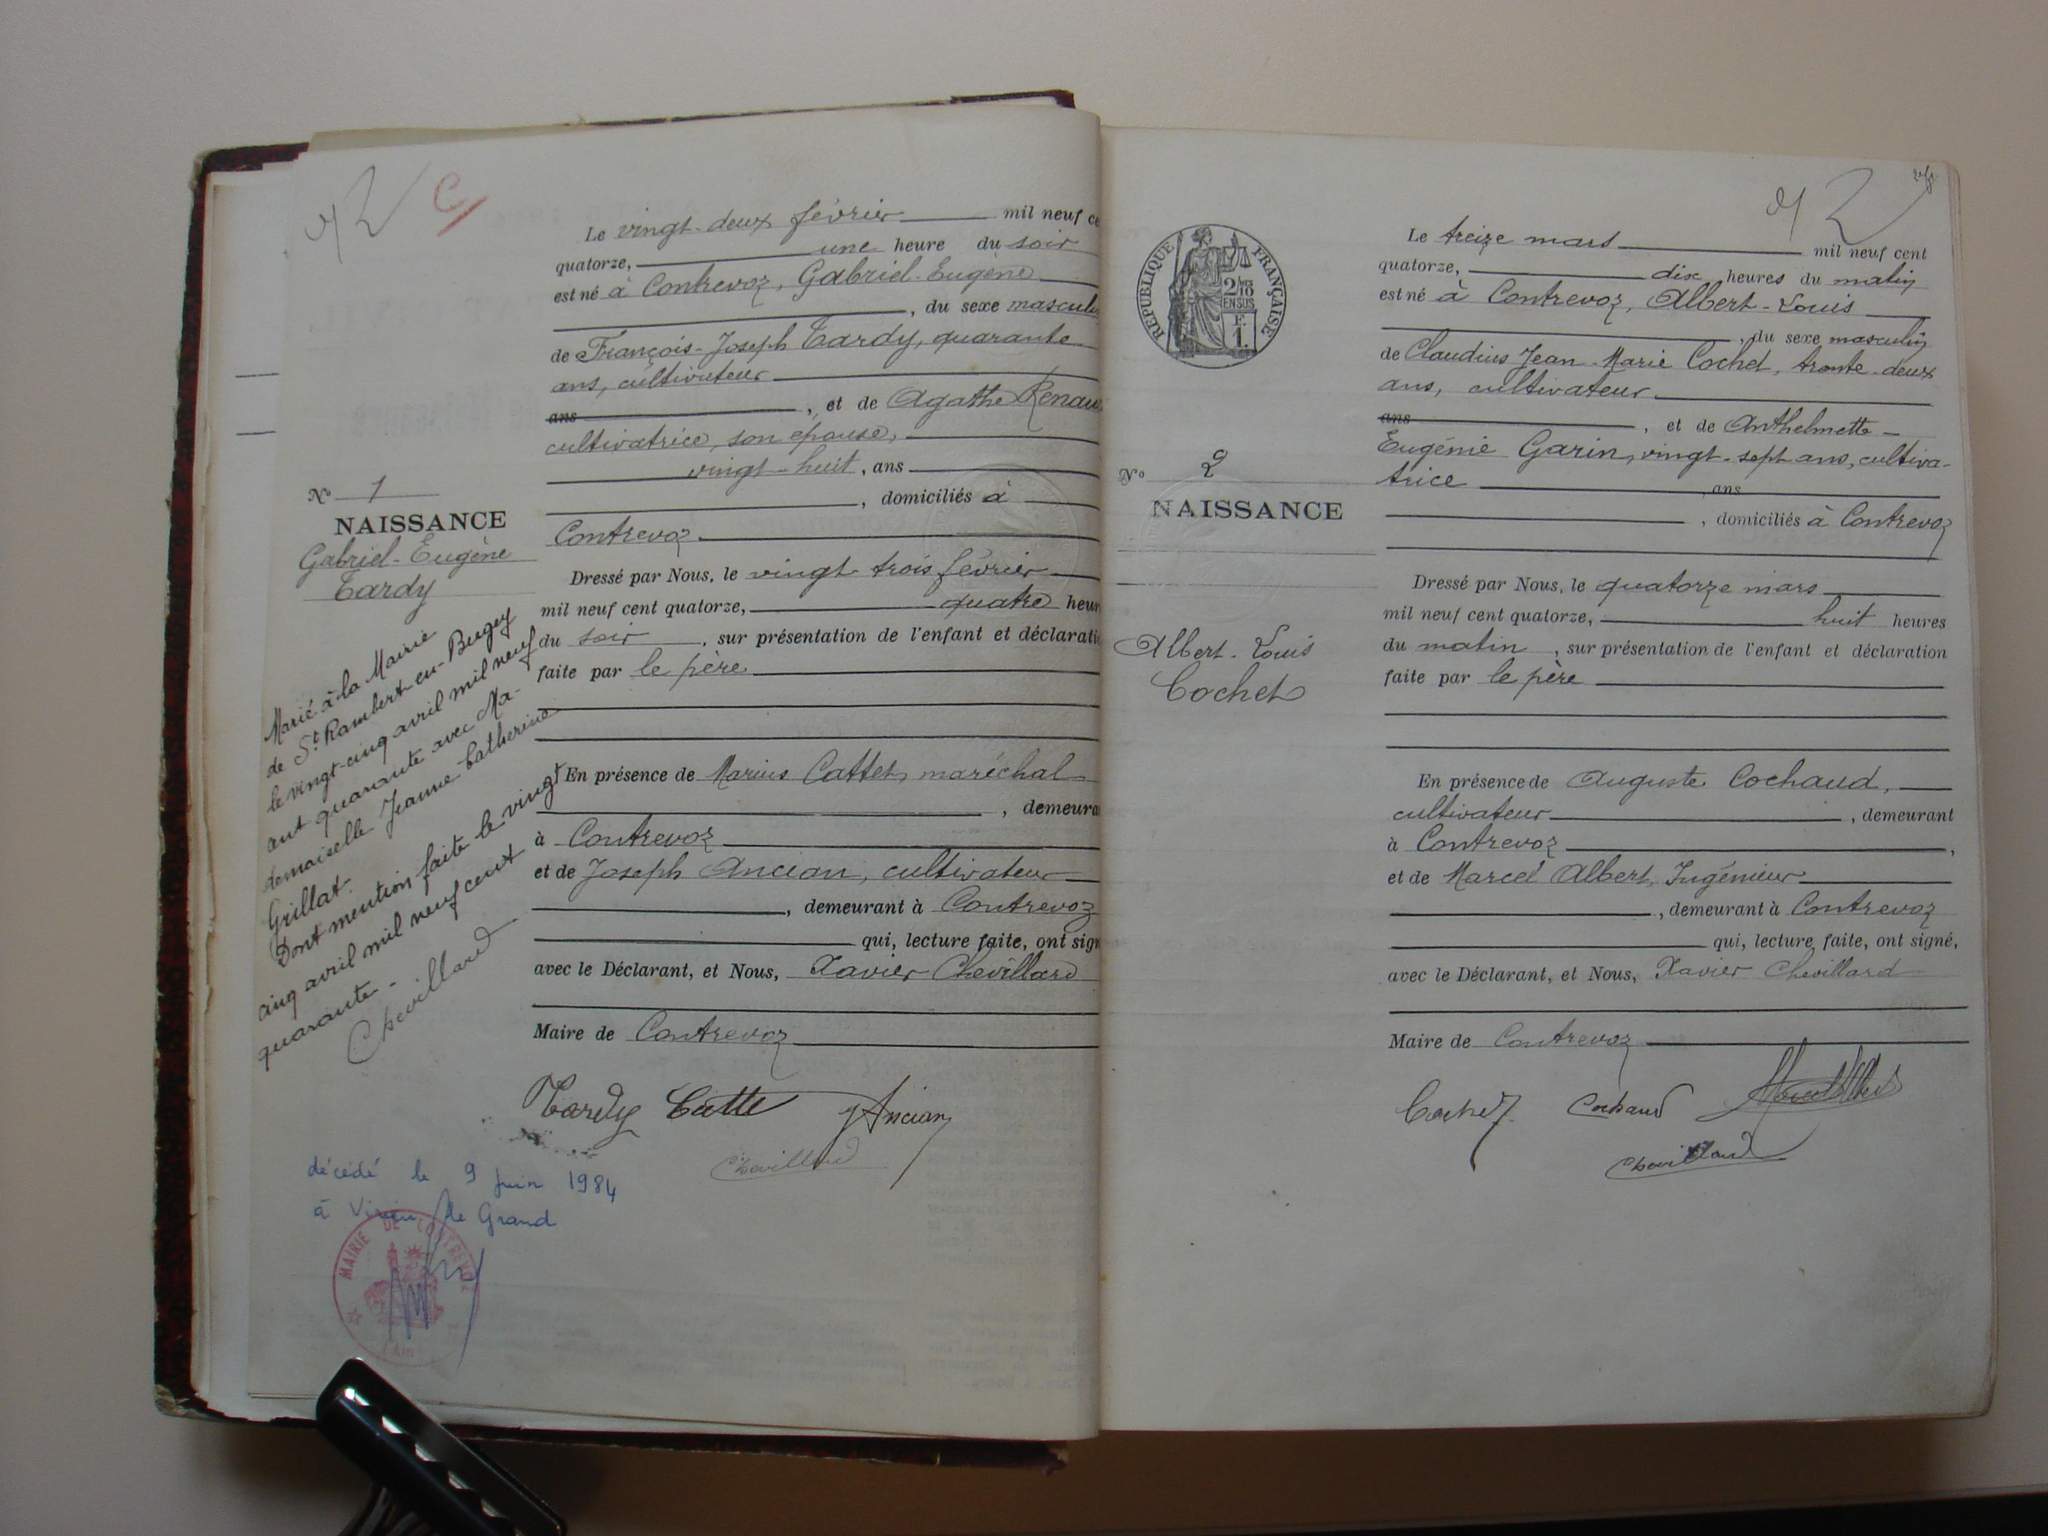 C
Le vingt-deux février mil neuf ce
quatorze, une heure du soir
est né à Contrevoz, Gabriel-Eugène
, du sexe masculin
de François-Joseph Tardy, quarante
ans, cultivateur
ans , et de Agathe Renau
cultivatrice, son épouse,
vingt-huit, ans
, domiciliés à
Contrevoz
Dressé par Nous, le vingt trois février
mil neuf cent quatorze, quatre heur
du soir, sur présentation de l'enfant et déclarati
faite par le père
En présence de Marius Cattet, maréchal
, demeura
à Contrevoz
et de Joseph Ancian, cultivateur
, demeurant à Contrevoz
qui, lecture faite, ont sign
avec le Déclarant, et Nous, Xavier Chevillard
Maire de Contrevoz
Tardy Catte J Ancian
Chevillard
No 1
NAISSANCE
Gabriel-Eugène
Tardy
Marié à la Mairie
de St Rambert-en-Bugey
le vingt-cinq avril mil neuf
cent quarante avec Ma-
demoiselle Jeanne Catherine
Grillat.
Dont mention faite le vingt
cinq avril mil neuf cent
quarante-
Chevillard
décédé le 9 Juin 1984
à Virieu le Grand
MAIRIE DE CONTREVOZ
(Ain)
2
RÉPUBLIQUE FRANÇAISE
2/10
EN SUS
F.
1.
Le treize mars mil neuf cent
quatorze, dix heures du matin
est né à Contrevoz, Albert-Louis
, du sexe masculin
de Claudius Jean-Marie Cochet, trente-deux
ans, cultivateur
ans , et de Anthelmette
Eugénie Garin, vingt-sept ans, cultiva-
trice , ans
, domiciliés à Contrevoz
Dressé par Nous, le quatorze mars
mil neuf cent quatorze, huit heures
du matin, sur présentation de l'enfant et déclaration
faite par le père
En présence de Auguste Cochaud,
cultivateur , demeurant
à Contrevoz ,
et de Marcel Albert, Ingénieur
, demeurant à Contrevoz
qui, lecture faite, ont signé,
avec le Déclarant, et Nous, Xavier Chevillard
Maire de Contrevoz
Cochet Cochaud Marcel Albert
Chevillard
No 2
NAISSANCE
Albert-Louis
Cochet